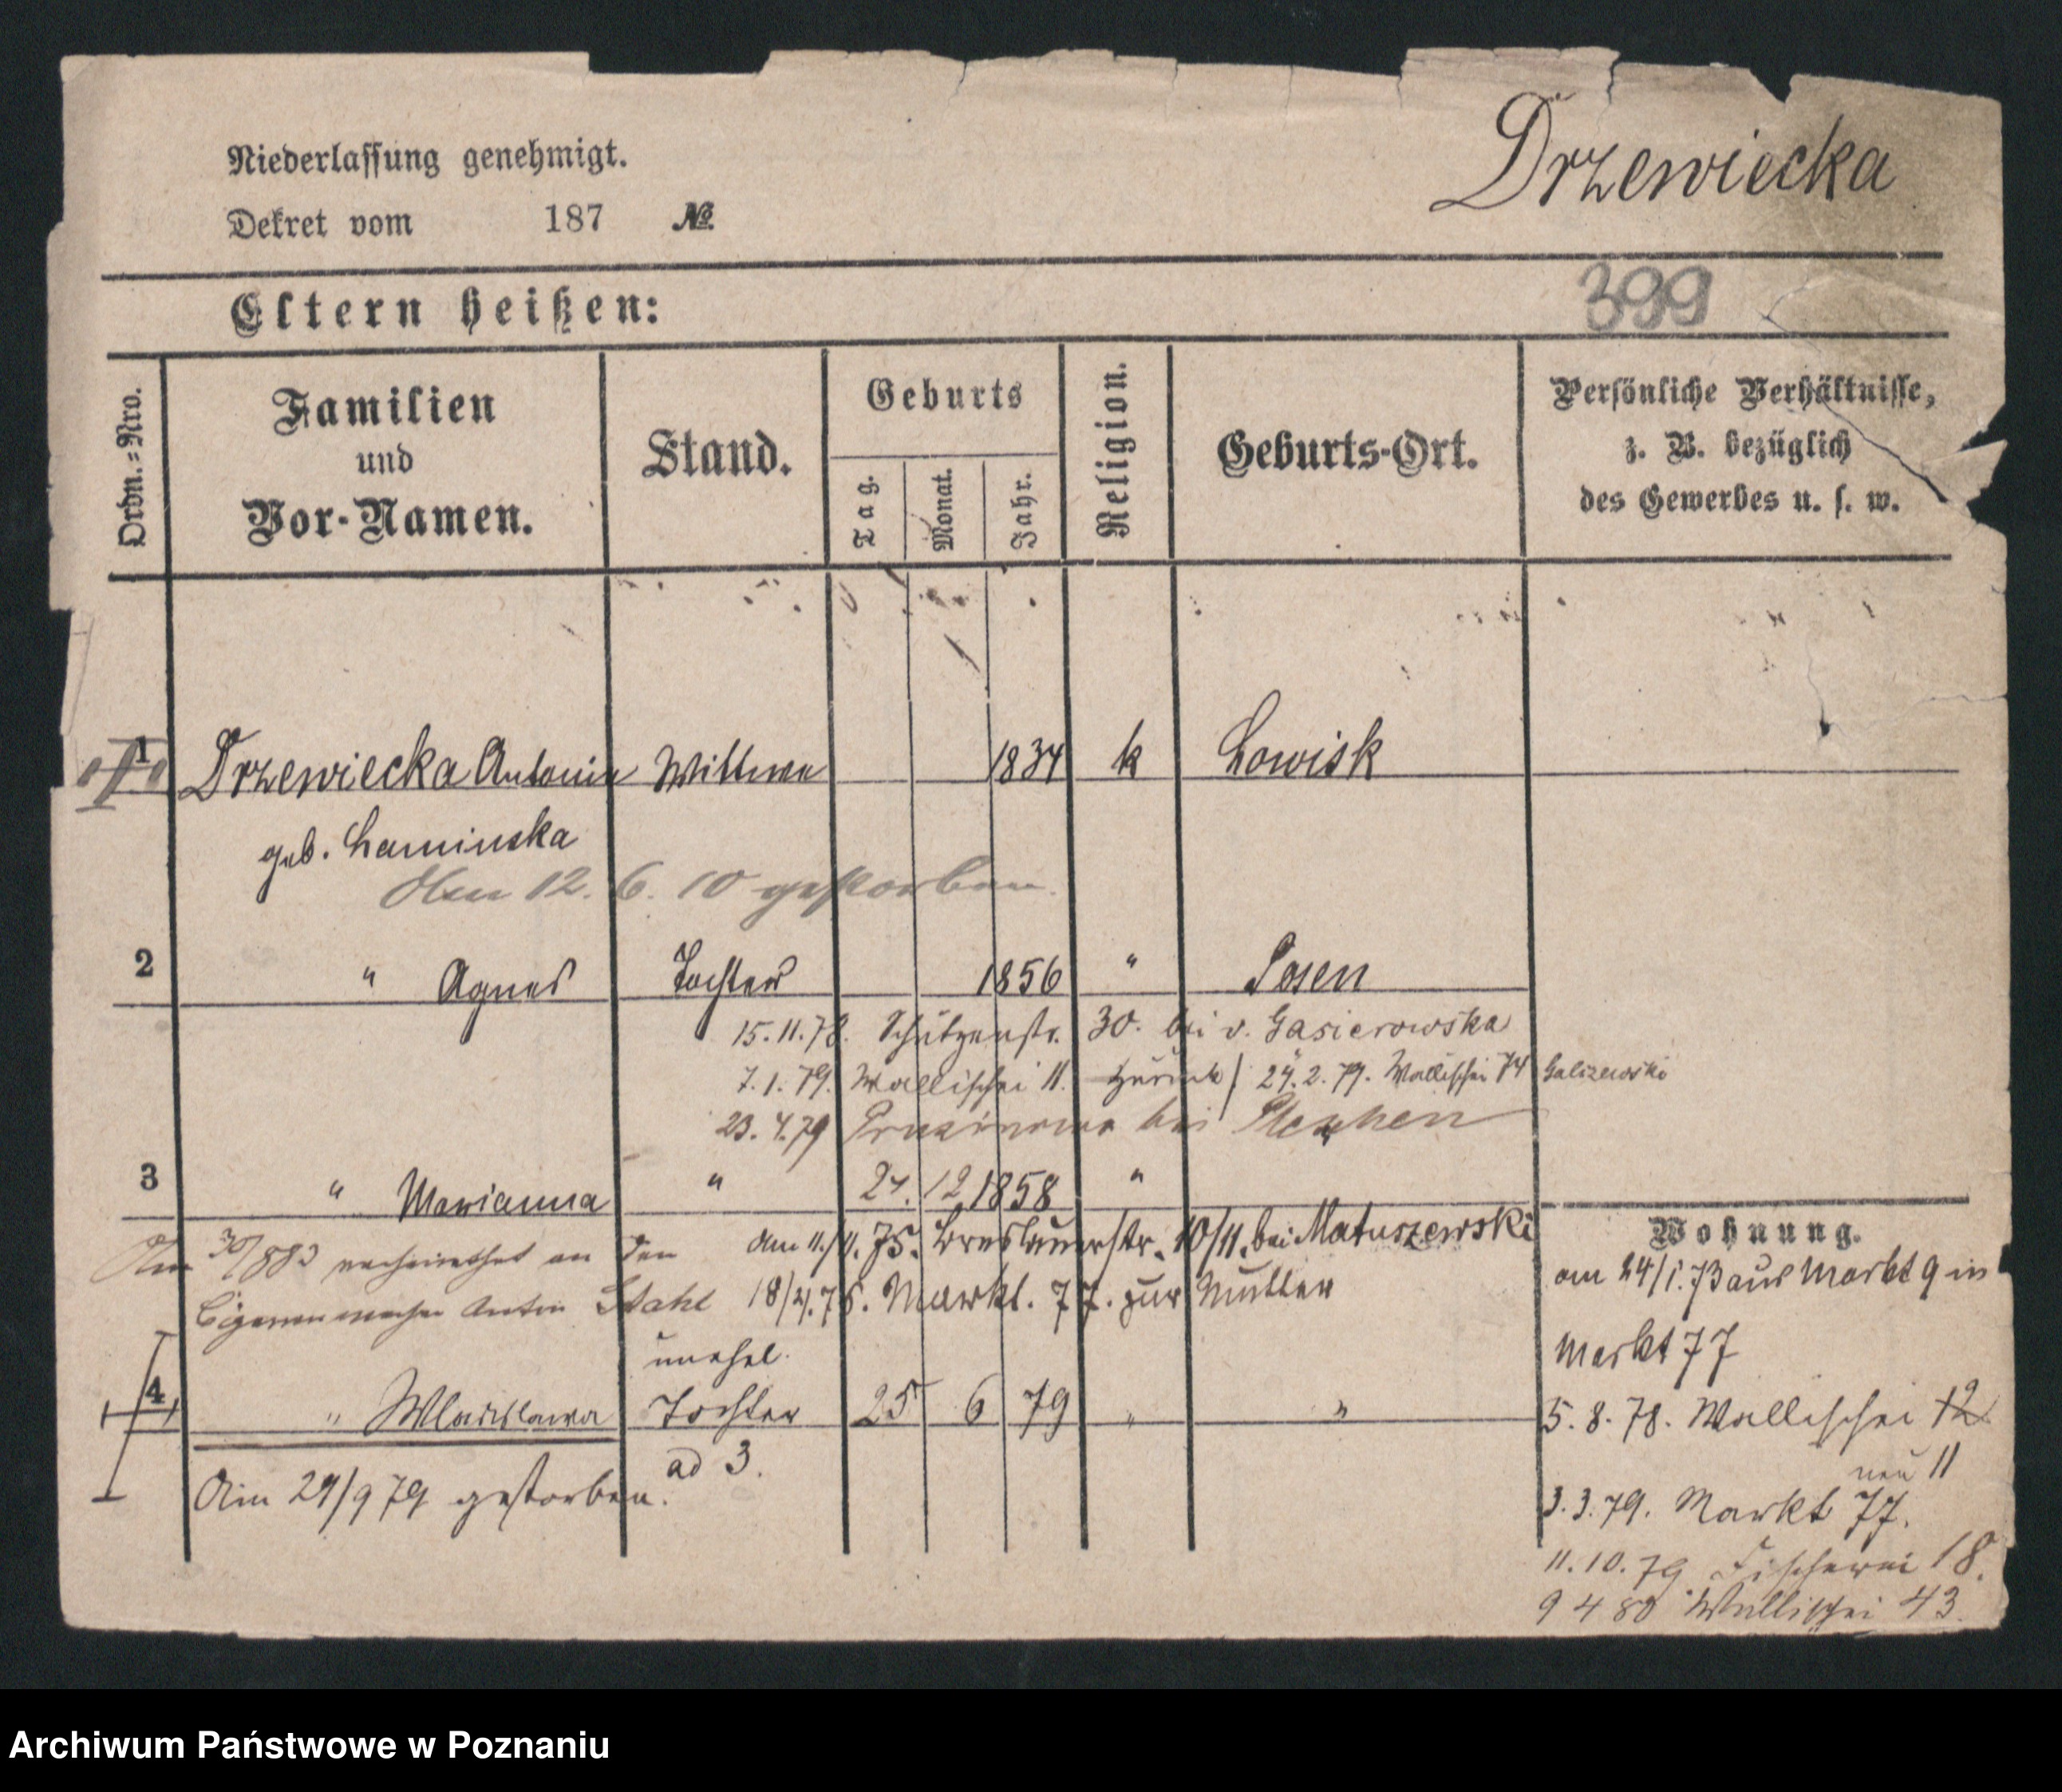 Niederlassung genehmigt.
Dekret vom 187 №
Drzewiecka
399
Eltern heißen:
Ordn.=Nro.
Familien
und
Vor-Namen.
Stand.
Geburts
Tag.
Monat.
Jahr.
Religion.
Geburts-Ort.
Persönliche Verhältnisse,
z. B. bezüglich
des Gewerbes u. s. w.
1 Drzewiecka Antonie Wittwe 1834 k Lowisk
geb.
Den 12. 6. 10 gestorben.
2 " Agnes Tochter 1856 " Posen
15.11.78. Schützenstr. 30. bei v. Gasierowska
7.1.79. Wallischei 11. zurück / 24.2.79. Wallischei 74
23.4.79 bei Pleschen
3 " Marianna " 27. 12 1858 "
Am verheirathet an den
Cigarrenmacher Anton Stahl
am 11./11. 75. Breslauerstr. 10/11. bei Matuszewski
18/4.76. Markt. 77. zur Mutter
unehel.
4 " Wladislawa Tochter 25 6 79 " "
ad 3.
Am 29/9 79 gestorben.
Wohnung.
am 24/1.73 aus Markt 9 in
Markt 77
5.8.78. Wallischei 12
neu 11
3.3.79. Markt 77.
11.10.79 Fischerei 18.
9 4 80 Wallischei 43.
Archiwum Państwowe w Poznaniu